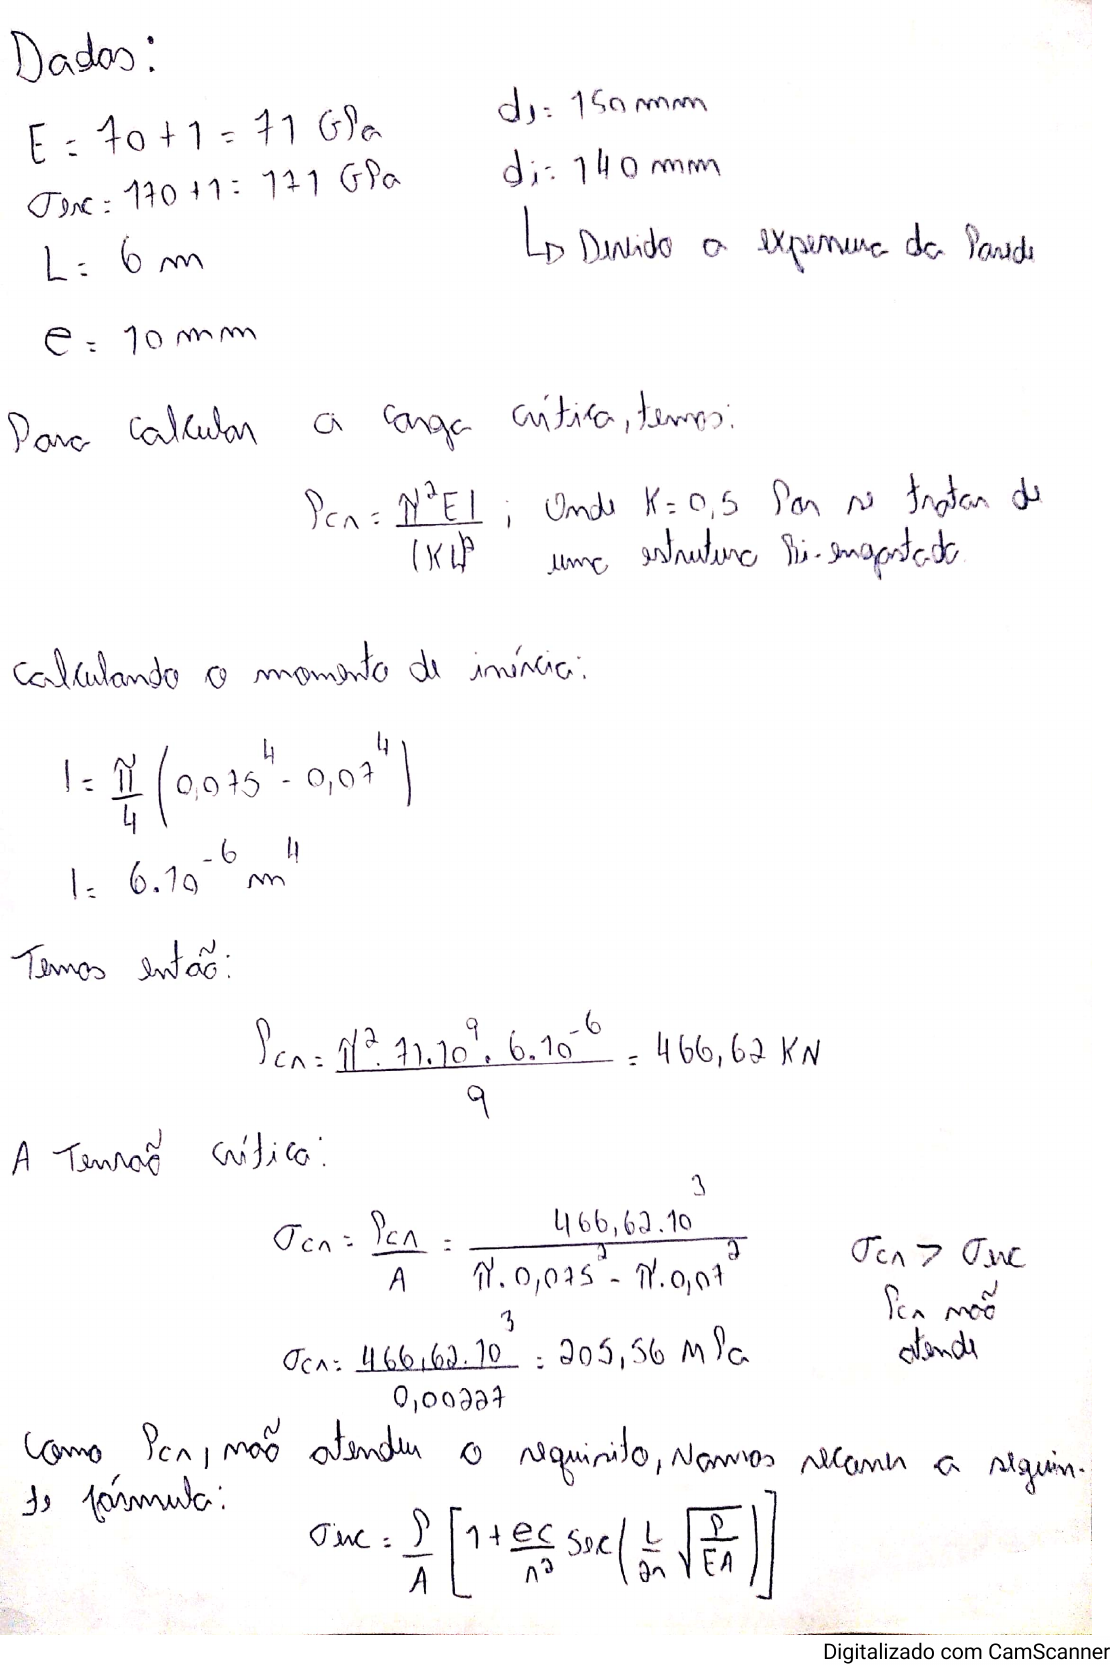 Dados:
E = 70 + 1 = 71 GPa
σesc = 170 + 1 = 171 GPa
L = 6 m
e = 10 mm
dj = 150 mm
di = 140 mm
↳ Devido a expessura da Parede
Para calcular a carga crítica, temos:
Pcr = π²EI / (KL)² ; Onde K = 0,5 Por se tratar de
uma estrutura Bi-engastada
Calculando o momento de inércia:
I = π/4 (0,075⁴ - 0,07⁴)
I = 6.10⁻⁶ m⁴
Temos então:
Pcr = π². 71.10⁹. 6.10⁻⁶ / 9 = 466,62 KN
A Tensão crítica:
σcr = Pcr / A = 466,62.10³ / π.0,075² - π.0,07²
σcr > σesc
Pcr não
atende
σcr = 466,62.10³ / 0,00227 = 205,56 MPa
Como Pcr, não atendeu o requisito, vamos recorrer a seguin-
te fórmula:
σesc = P/A [1 + ec/r² Sec(L/2r √P/EA)]
Digitalizado com CamScanner